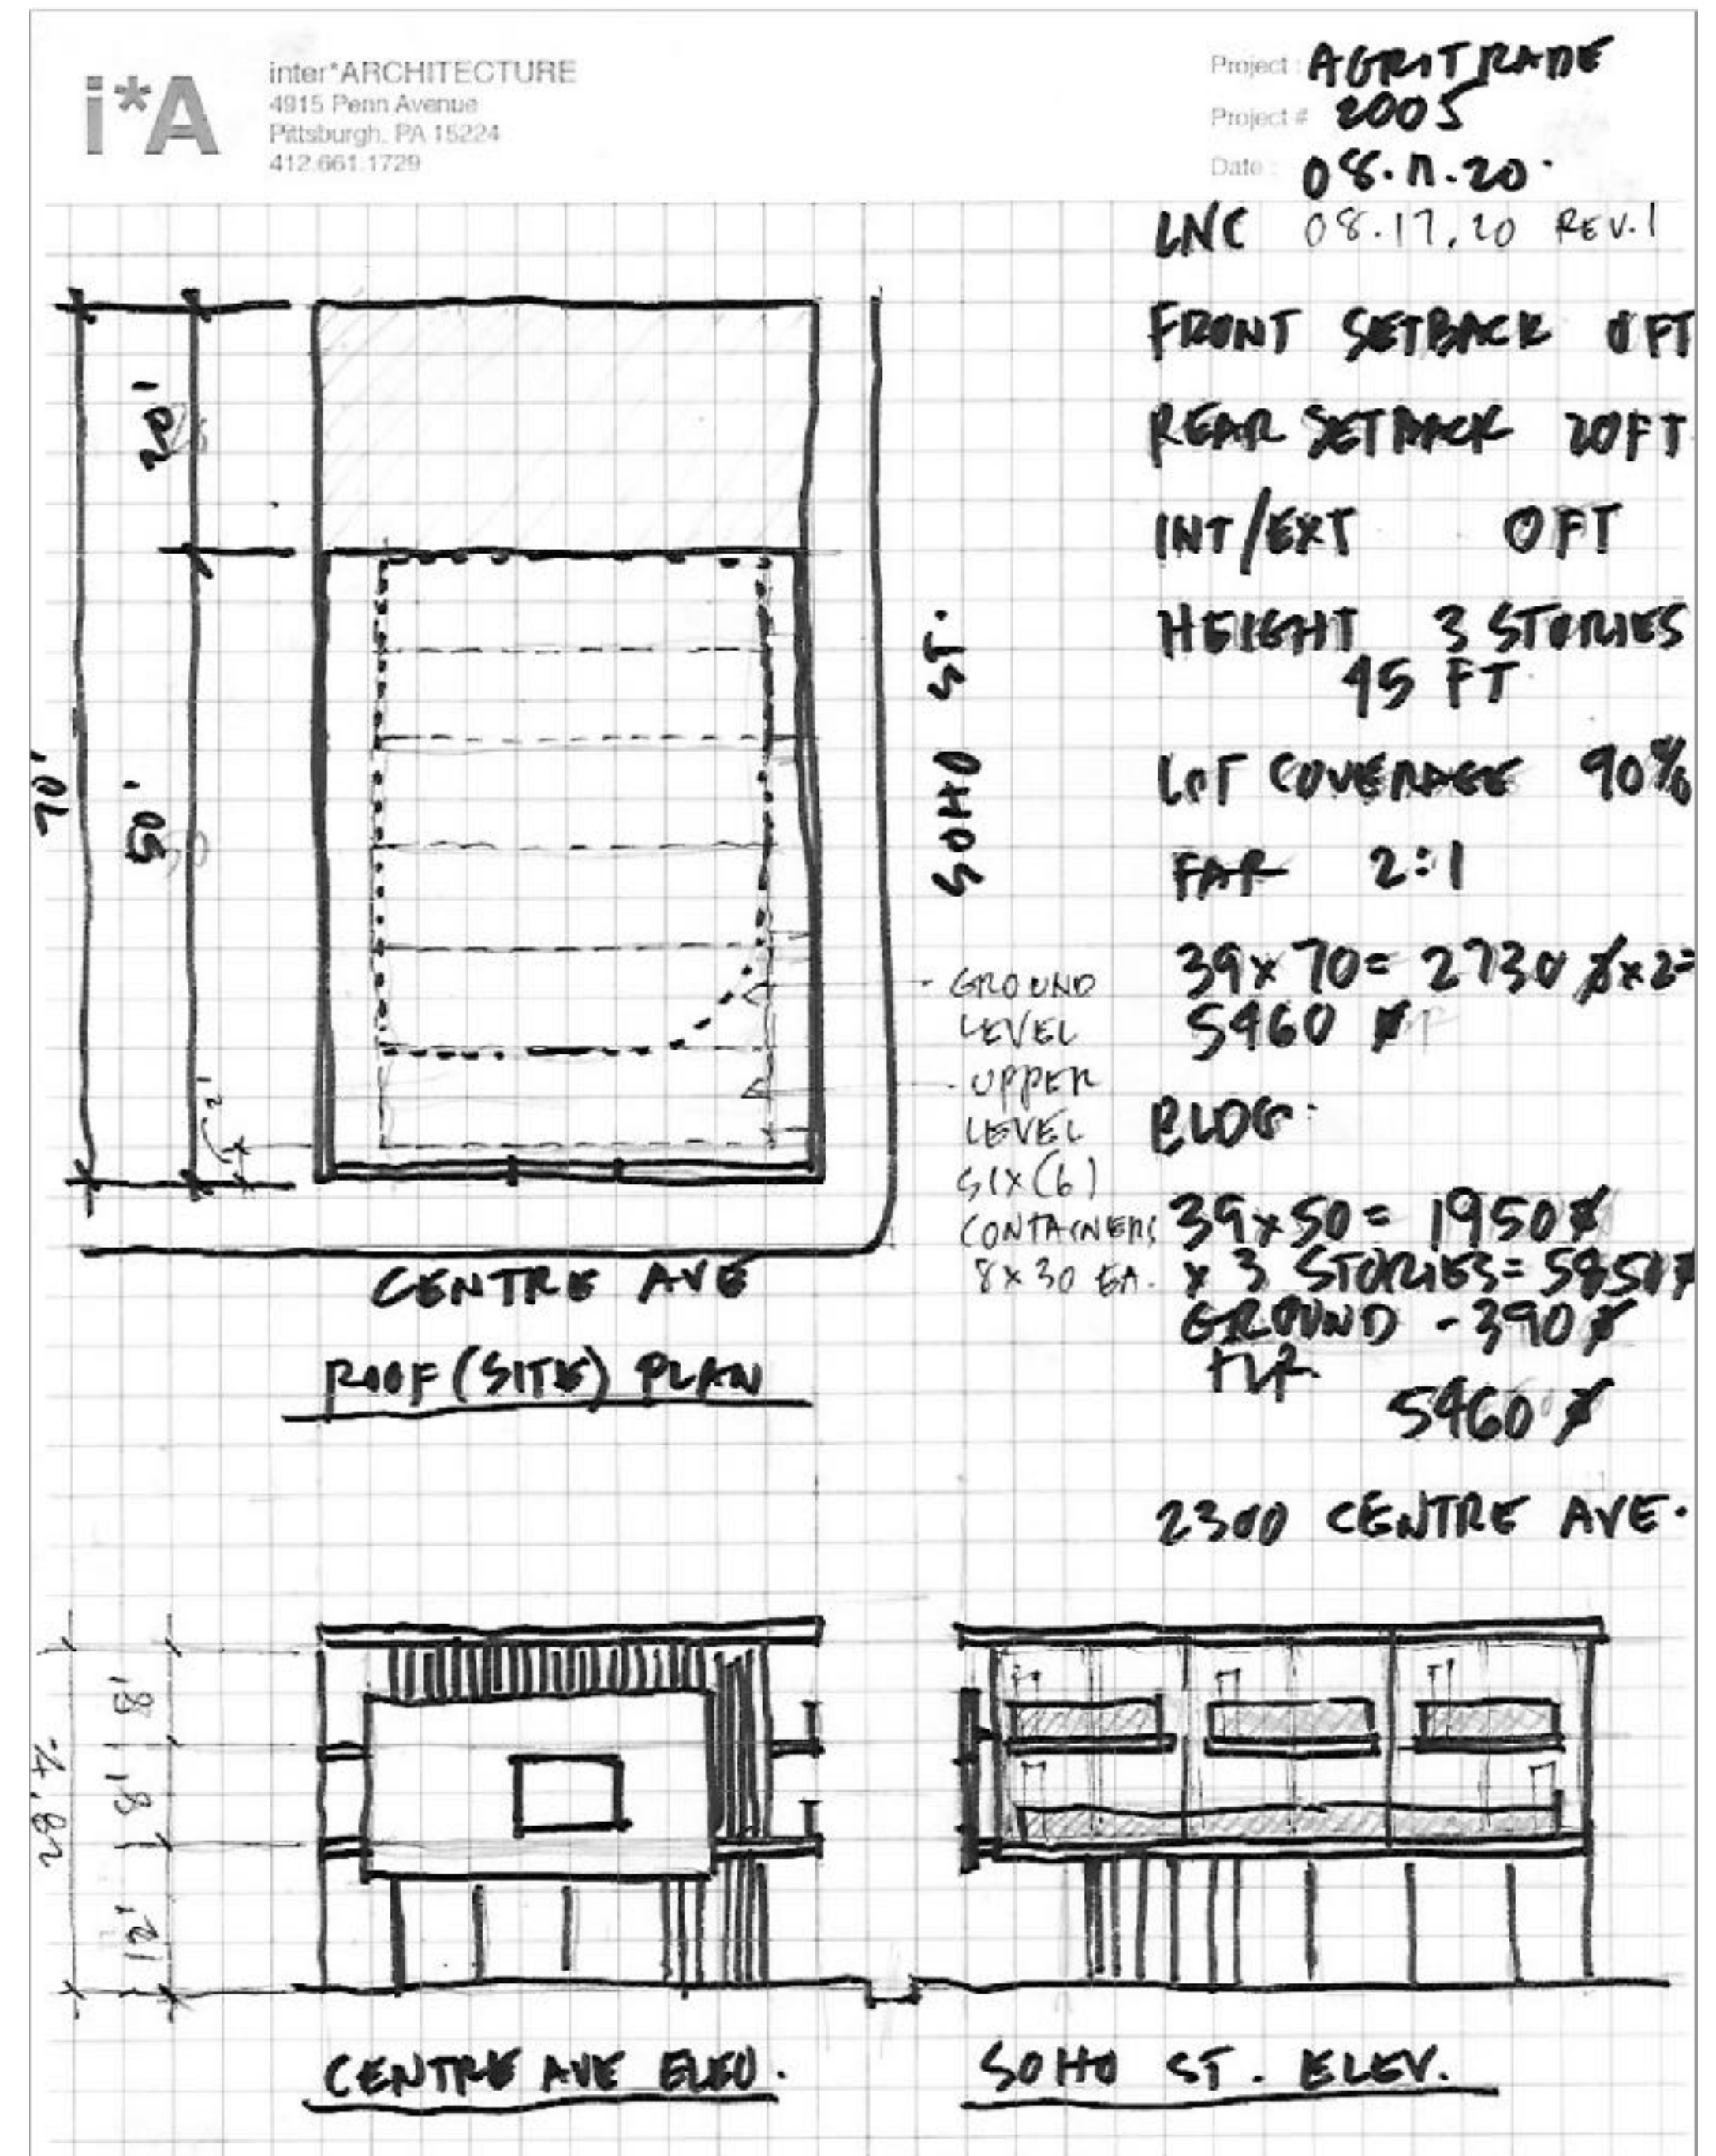 i*A
inter*ARCHITECTURE
4915 Penn Avenue
Pittsburgh, PA 15224
412.661.1729
Project : AGRITRADE
Project # 2005
Date : 08.11.20.
LNC 08.17.20 REV.1
FRONT SETBACK 0 FT
REAR SETBACK 20FT
INT/EXT 0FT
HEIGHT 3 STORIES
45 FT.
LOT COVERAGE 90%
FAR 2:1
39x70= 2730 ⌀x2=
5460 ⌀
BLDG.
39x50= 1950⌀
x 3 STORIES= 5850⌀
GROUND -390⌀
FLR.
5460 ⌀
2300 CENTRE AVE.
20'
70'
50'
2'
SOHO ST.
- GROUND
LEVEL
- UPPER
LEVEL
SIX(6)
CONTAINERS
8x30 EA.
CENTRE AVE
ROOF (SITE) PLAN
8'
8'
12'
28'±
CENTRE AVE ELEV.
SOHO ST. ELEV.